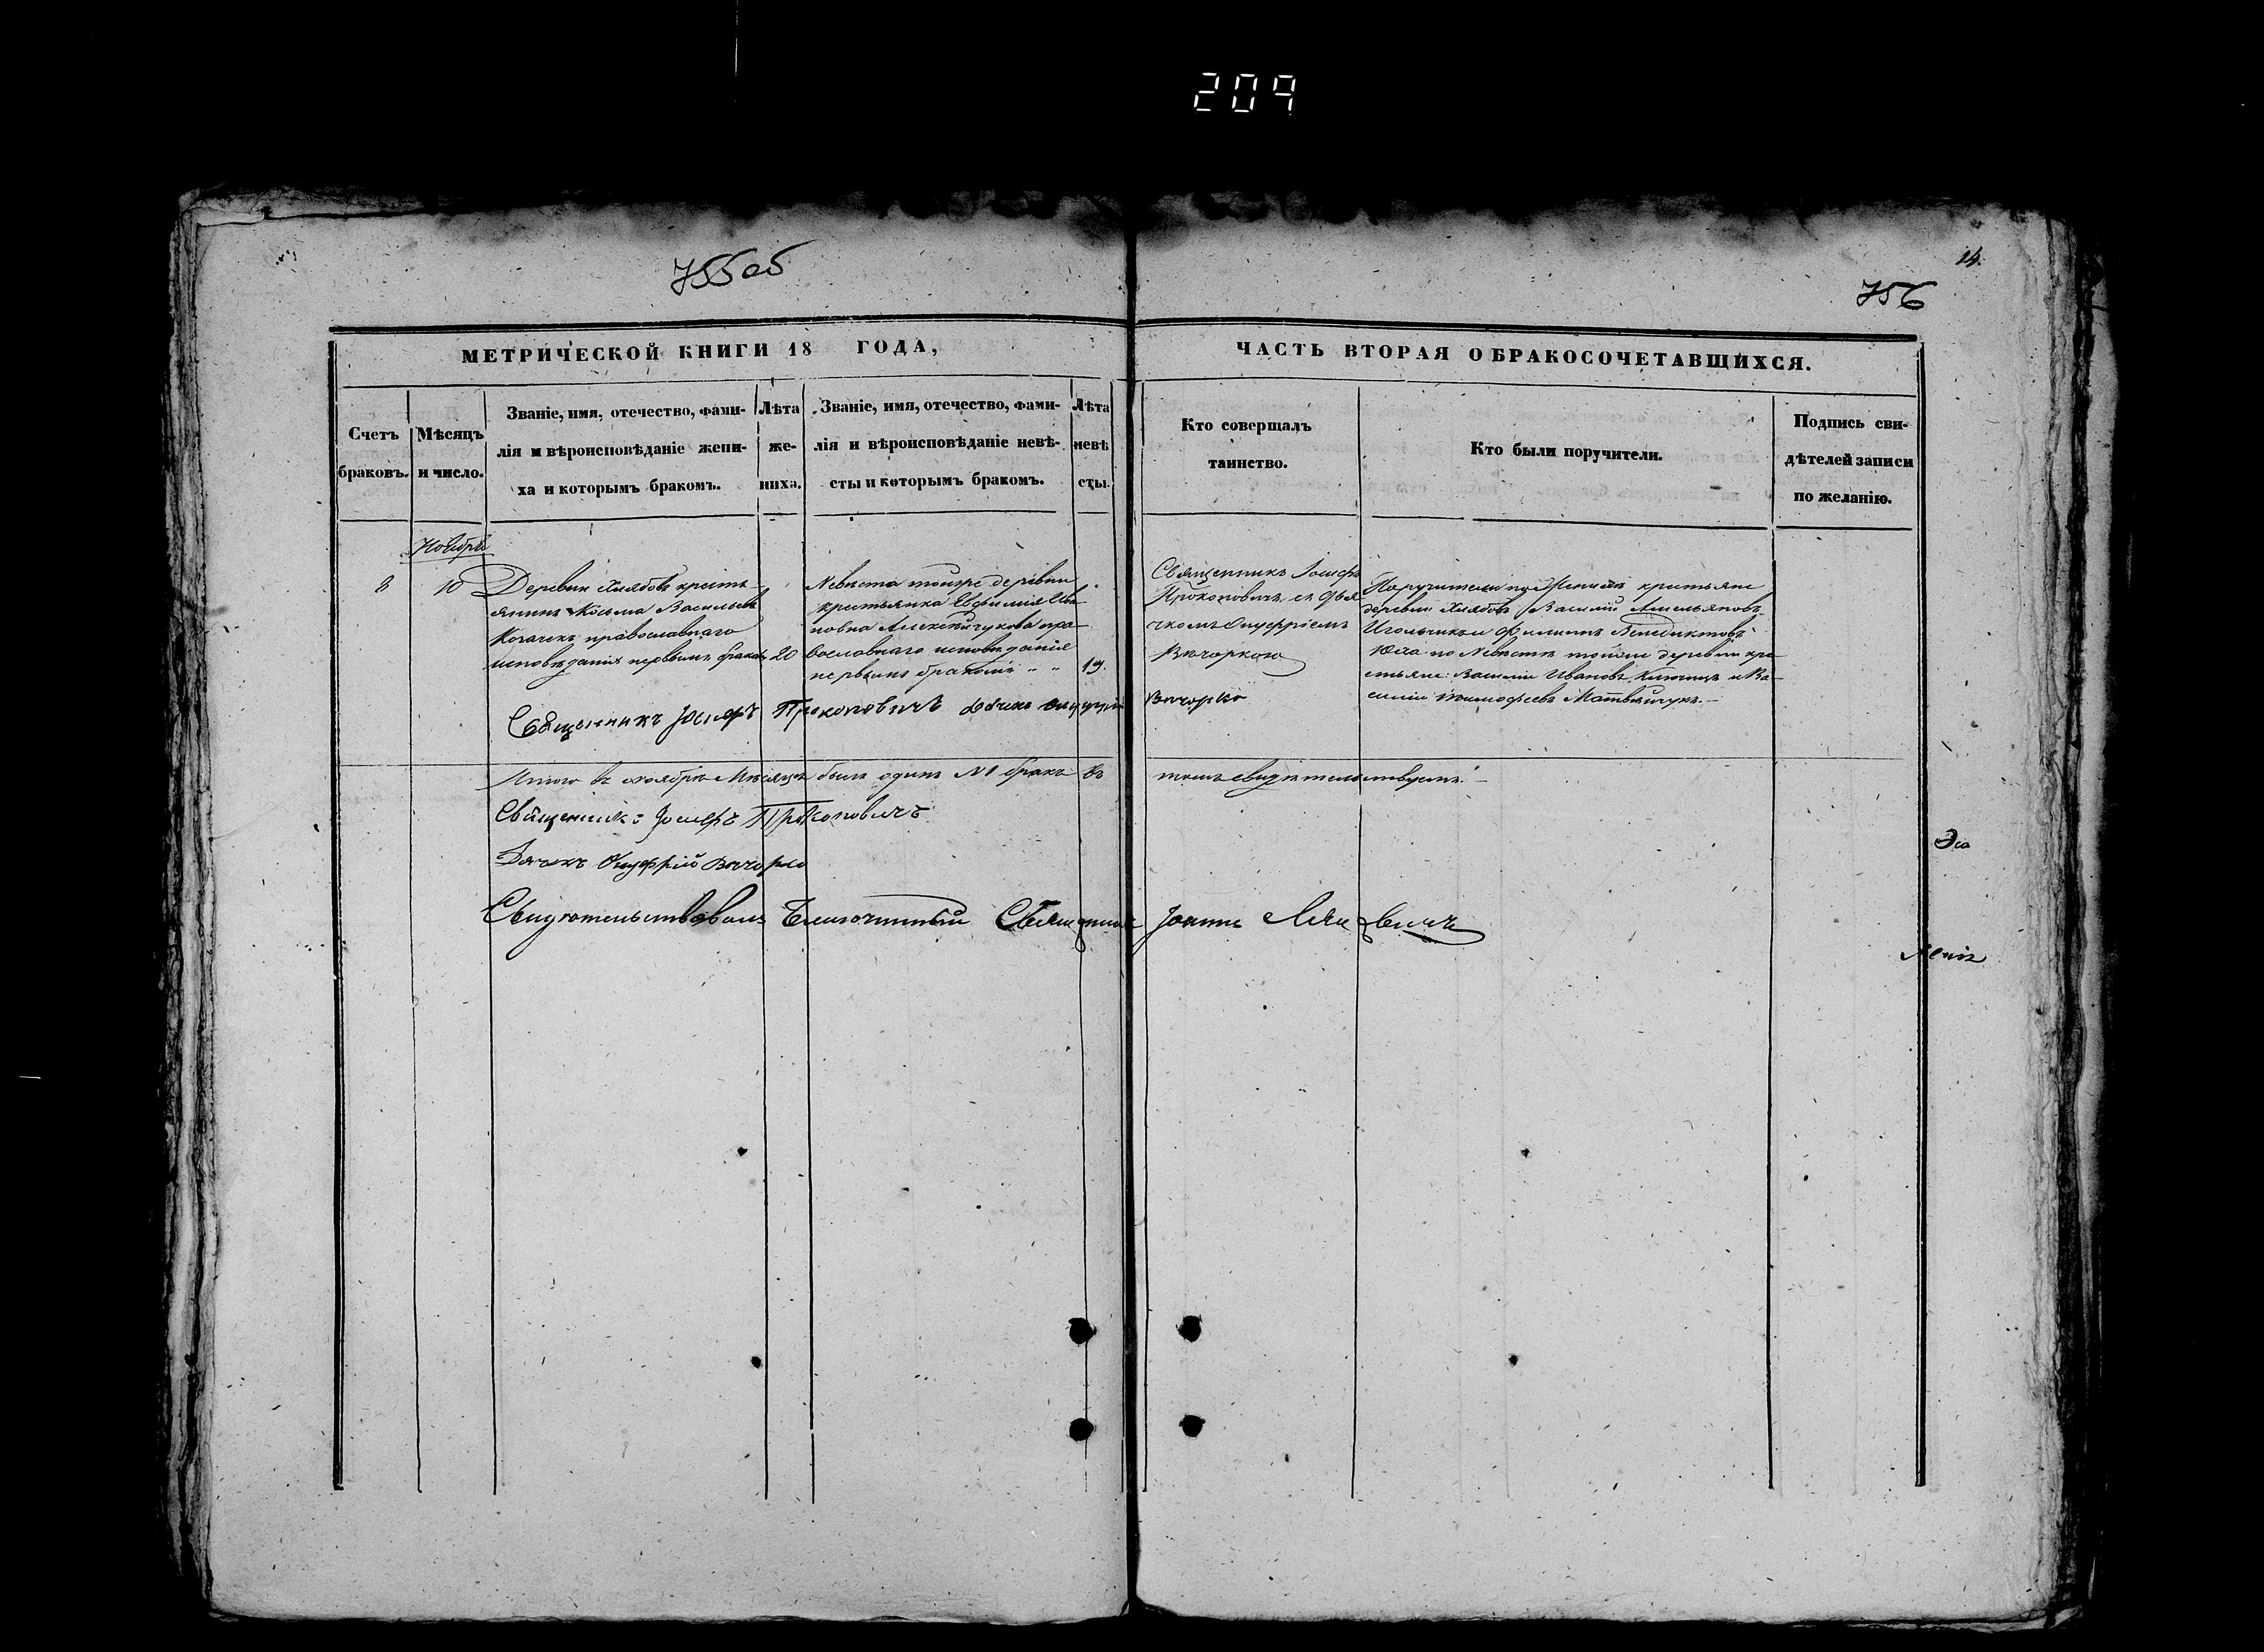 209
755об
14.
756
МЕТРИЧЕСКОЙ КНИГИ 18 ГОДА,
ЧАСТЬ ВТОРАЯ О БРАКОСОЧЕТАВШИХСЯ.
Счетъ
браковъ.
Мѣсяцъ
и число.
Званіе, имя, отечество, фами-
лія и вѣроисповѣданіе жени-
ха и которымъ бракомъ.
Лѣта
же-
ниха.
Званіе, имя, отечество, фами-
лія и вѣроисповѣданіе невѣ-
сты и которымъ бракомъ.
Лѣта
невѣ
сты.
Кто совершалъ
таинство.
Кто были поручители.
Подпись сви-
дѣтелей записи
по желанію.
Ноябрь
8
10
Деревни Хлябовъ кресть-
янинъ Козьма Васильевъ
Козачекъ православнаго
исповѣданія первымъ бракомъ
20
Невѣста тойже деревни
крестьянка Евфимія Ива
новна Алексѣйчукова пра
вославнаго исповѣданія
первымъ бракомъ
19.
Священникъ Іосифъ
Прокоповичъ съ Дья
чкомъ Онуфріемъ
Вечоркою
Поручители по Женихѣ крестьяне
деревни Хлябовъ Василій Амельяновъ
и Филиппъ Венедиктовъ
по Невѣстѣ тойже деревни кре
стьяне: Василій Ивановъ и Ва
силій Тимофеевъ Матвѣйчукъ.
Священникъ Іосифъ Прокоповичъ Дьячекъ Онуфрій Вечорко
Итого въ Ноябрѣ Мѣсяцѣ былъ одинъ №1 бракъ въ томъ свидѣтельствуемъ.
Священникъ Іосифъ Прокоповичъ
Дячекъ Онуфрій Вечорко
Свидѣтельствовалъ Благочинный Священникъ Іоаннъ